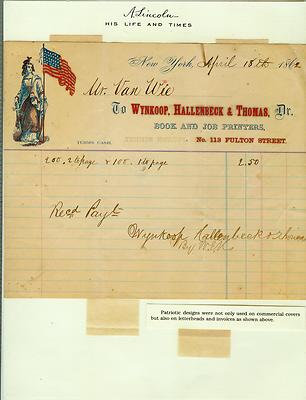 A. Lincoln
HIS LIFE AND TIMES
New York, April 18th 1862
Mr. Van Wie
To WYNKOOP, HALLENBECK & THOMAS, Dr.
BOOK AND JOB PRINTERS,
TERMS CASH. No. 113 FULTON STREET.
200. 2/6 page & 100. 1/6 page 2.50
Recd Payt
Wynkoop Hallenbeck & Thomas
By
Patriotic designs were not only used on commercial covers
but also on letterheads and invoices as shown above.